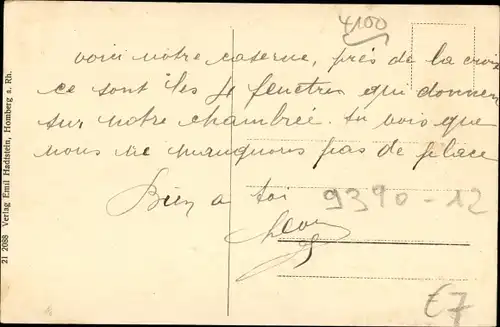 4100
voici notre caserne, près de la croix
ce sont les 4 fenetres qui donnent
sur notre chambrée. tu vois que
nous ne manquons pas de place
Bien a toi
9390-12
€7
21 2088 Verlag Emil Hadtstein, Homberg a. Rh.